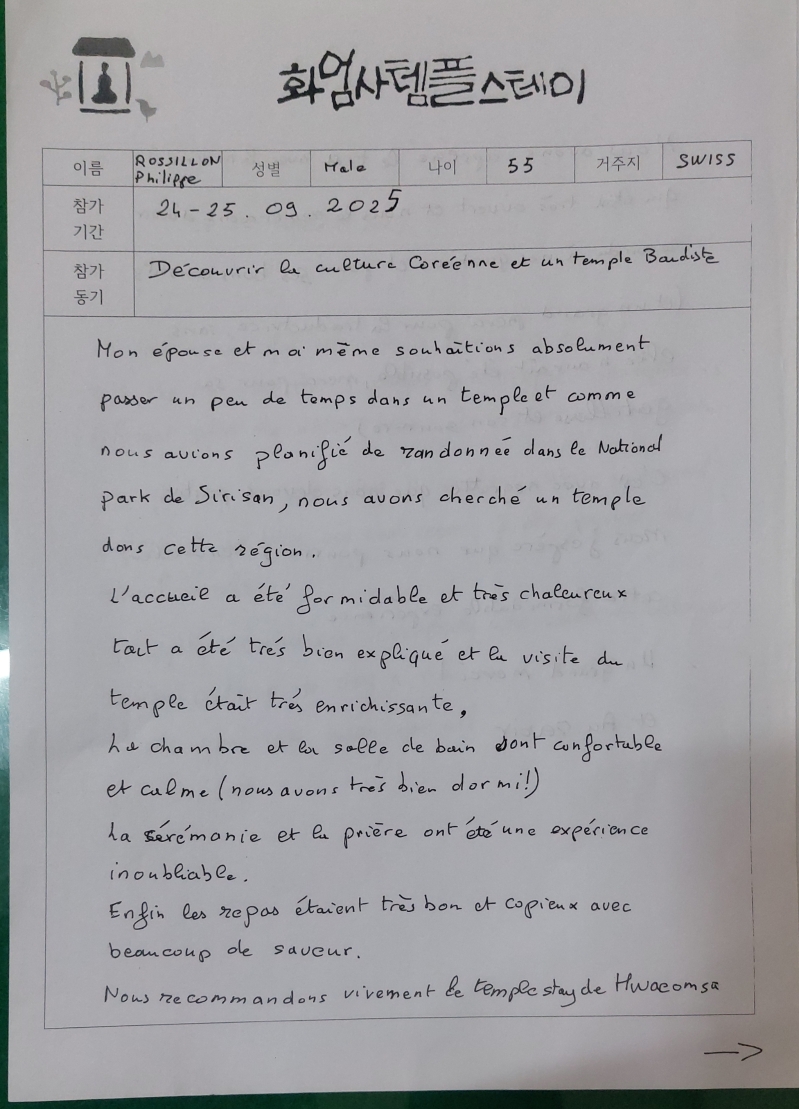 화엄사템플스테이
이름 ROSSILLON Philippe 성별 Male 나이 55 거주지 SWISS
참가 기간 24-25.09.2025
참가 동기 Découvrir la culture Coréenne et un temple Boudiste
Mon épouse et moi même souhaitions absolument
passer un peu de temps dans un temple et comme
nous avions planifié de randonnée dans le National
park de Sirisan, nous avons cherché un temple
dans cette région.
L'accueil a été formidable et très chaleureux
tout a été très bien expliqué et la visite du
temple était très enrichissante,
La chambre et la salle de bain sont confortable
et calme (nous avons très bien dormi!)
La sérémonie et la prière ont été une expérience
inoubliable.
Enfin les repas étaient très bon et copieux avec
beaucoup de saveur.
Nous recommandons vivement le temple stay de Hwaeomsa
→